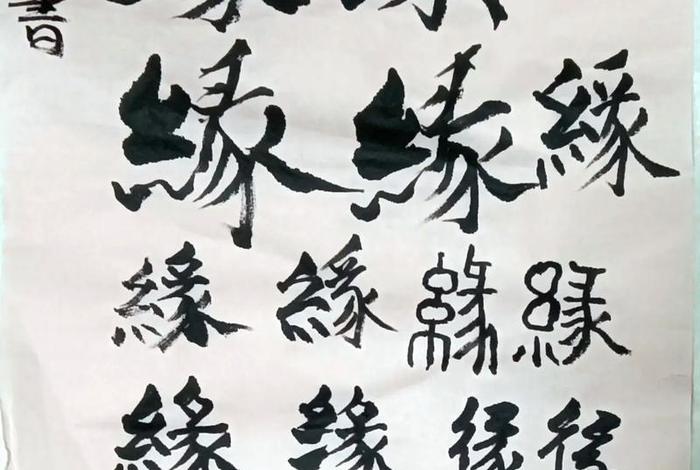 書
緣 緣 緣
緣 緣 緣 緣
緣 緣